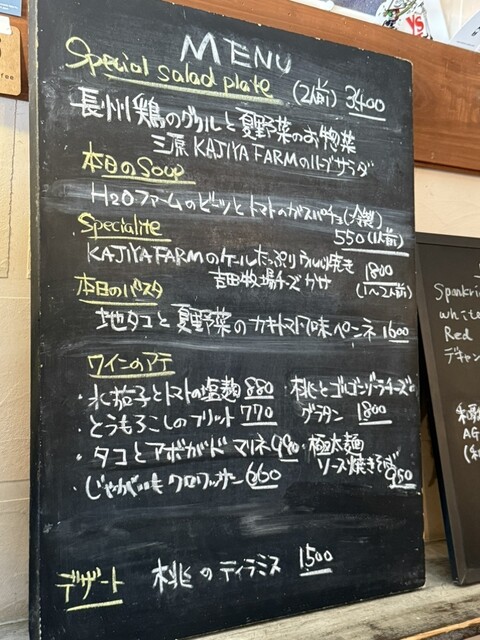 MENU
Special salad plate (2人前) 3400
長州鶏のグリルと夏野菜のお惣菜
三原 KAJIYA FARMのハーブサラダ
本日のSoup
H2Oファームのビーツとトマトのガスパチョ(冷製)
550(1人前)
Specialite
KAJIYA FARMのケールたっぷり 焼き 1800
吉田牧場チーズ (1〜2人前)
本日のパスタ
地タコと夏野菜の トマト 味 ペンネ 1600
ワインのアテ
・水茄子とトマトの塩麹 880
・とうもろこしのフリット 770
・タコとアボガド マリネ 990
・じゃがいも クロワッサン 660
・桃とゴルゴンゾーラチーズと
グラタン 1800
・極太麺
ソース焼きそば
950
デザート 桃のティラミス 1500
Red
デキャン
AG
YS